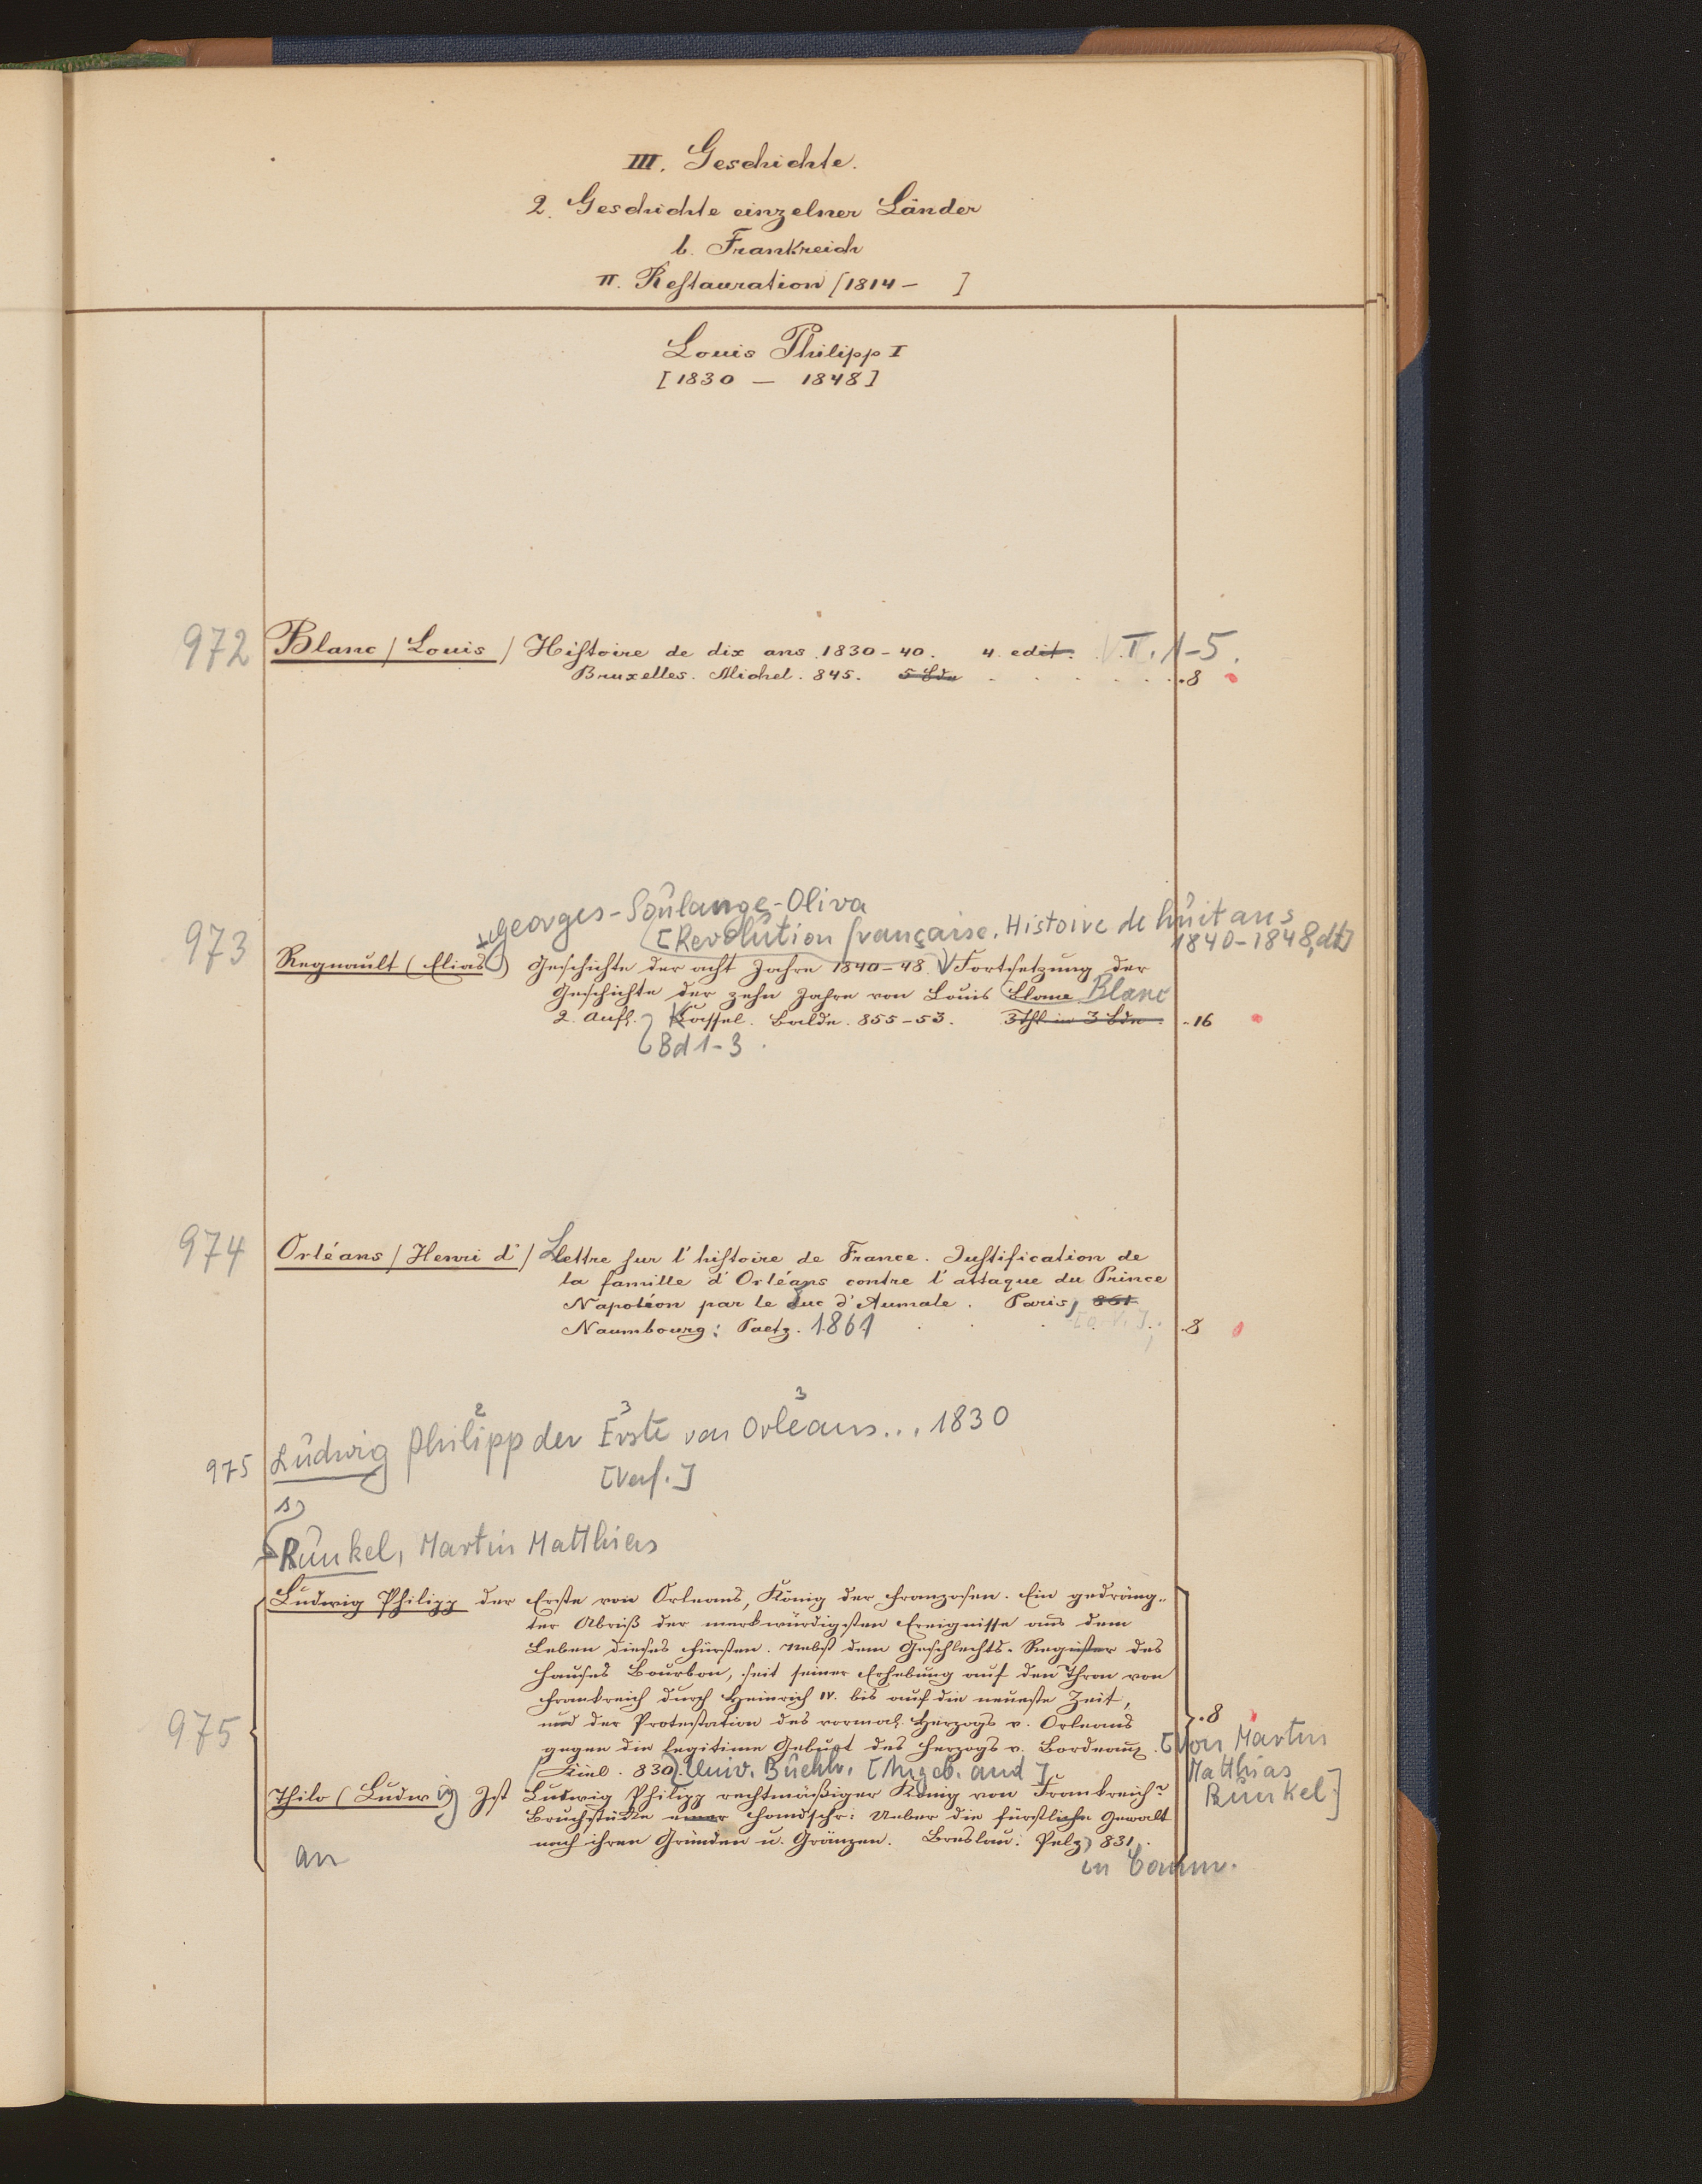 III. Geschichte.
2. Geschichte einzelner Länder
b. Frankreich
II. Restauration [1814 – ]
Louis Philipp I
[1830 — 1848]
972 Blanc (Louis) Histoire de dix ans 1830-40. 4. edit. T. 1-5.
Bruxelles. Michel. 845. 5 Bde . . . . . . 8
Georges-Soulange-Oliva
[Revolution française. Histoire de huit ans
1840-1848, dt]
973 Regnault (Elias) Geschichte der acht Jahre 1840-48. Fortsetzung der
Geschichte der zehn Jahre von Louis Blanc Blanc
2. Aufl. Kassel. Balde. 855-53. 3 Thl. in 3 Bde . 16
Bd 1-3.
974 Orléans (Henri d') Lettre sur l'histoire de France. Justification de
la famille d'Orléans contre l'attaque du Prince
Napoléon par le Duc d'Aumale. Paris, 861
Naumbourg: Paetz. 1861 . . 8
975 Ludwig Philipp der Erste von Orleans... 1830
[Verf.]
Runkel, Martin Matthias
Ludwig Philipp der Erste von Orleans, König der Franzosen. Ein gedräng-
ter Abriß der merkwürdigsten Ereignisse aus dem
Leben dieses Fürsten. Nebst dem Geschlechts-Register des
Hauses Bourbon, seit seiner Erhebung auf den Thron von
Frankreich durch Heinrich IV. bis auf die neueste Zeit,
975 und der Protestation des vormal. Herzogs v. Orleans . 8
gegen die legitime Geburt des Herzogs v. Bordeaux. [Von Martin
Matthias
Runkel]
Kiel. 830. Univ. Buchh. [Angeb. and]
Thilo (Ludwig) Ist Ludwig Philipp rechtmäßiger König von Frankreich?
Bruchstücke einer Handschr: Ueber die fürstliche Gewalt
nach ihren Gründen u. Gränzen. Breslau: Pelz, 831.
an in Comm.